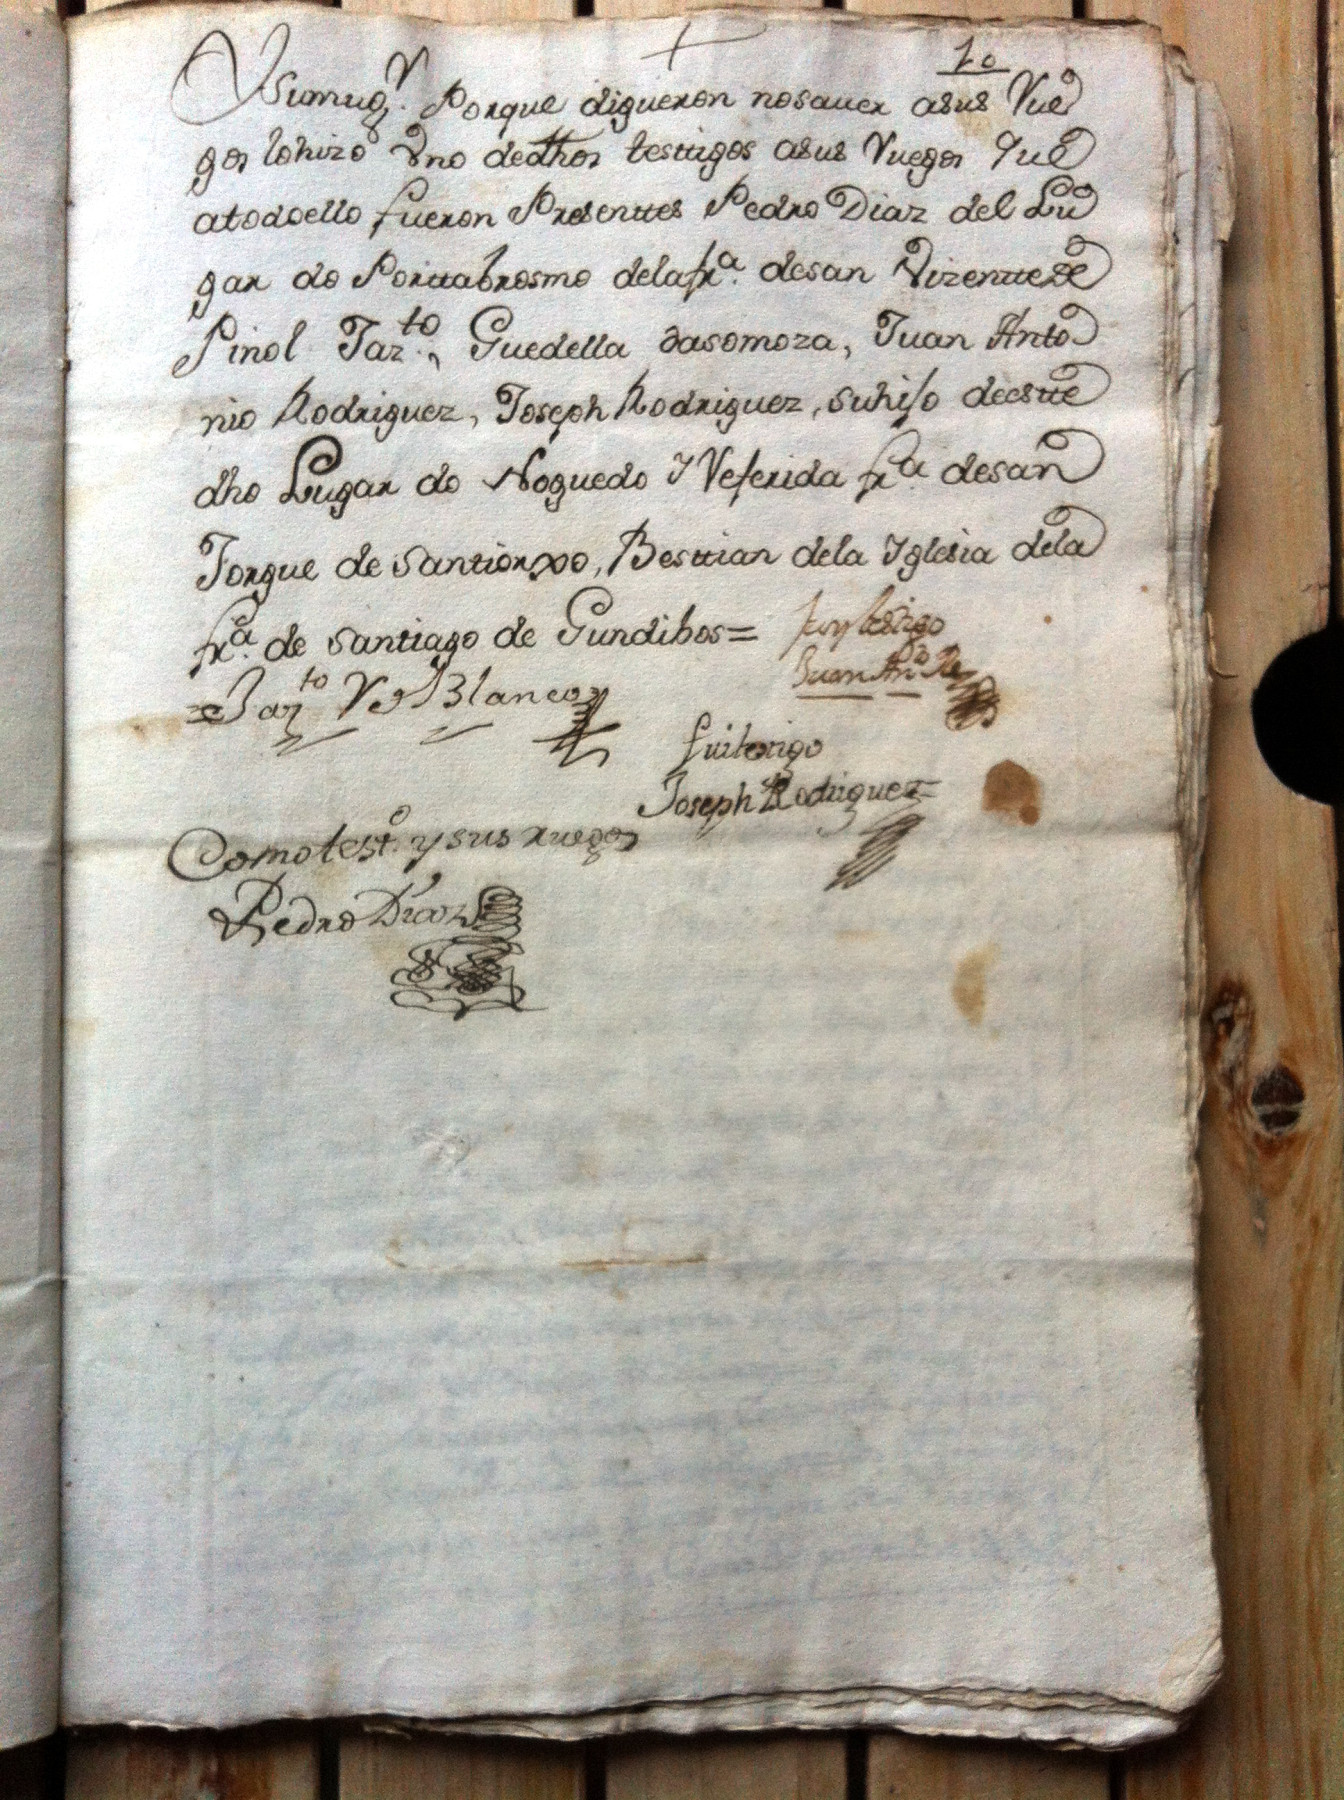 10
Ysumugr. Porque digueron nosauer asus Rue
gos lohizo Vno dedhos testtigos asus Ruegos Que
atodoello fueron Presenttes Pedro Diaz del Lu
gar do Porttabrosmo delafra. desan Vizenttede
Pinol Jazto., Guedella dasomoza, Juan Anto
nio Rodriguez, Joseph Rodriguez, suhijo deestte
dho Lugar do Noguedo Y Referida fra desan
Jorgue de santiorxo, Besttian dela Yglesia dela
fra. de santiago de Gundibos=
Juan Anto
Jazto Blanco
fui testigo
Joseph Rodriguez
Comotesto. ysus ruegos
Pedro Diaz